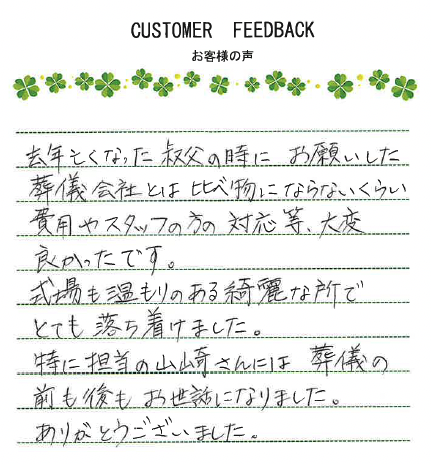 CUSTOMER FEEDBACK
お客様の声
去年亡くなった叔父の時に お願いした
葬儀会社とは比べ物にならないくらい
費用やスタッフの方の対応等、大変
良かったです。
式場も温もりのある綺麗な所で
とても落ち着けました。
特に担当の山﨑さんには 葬儀の
前も後もお世話になりました。
ありがとうございました。